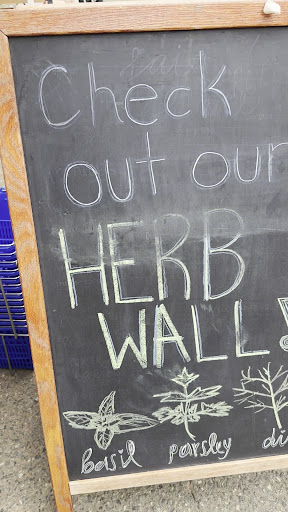 Check
out our
HERB
WALL!
basil parsley di